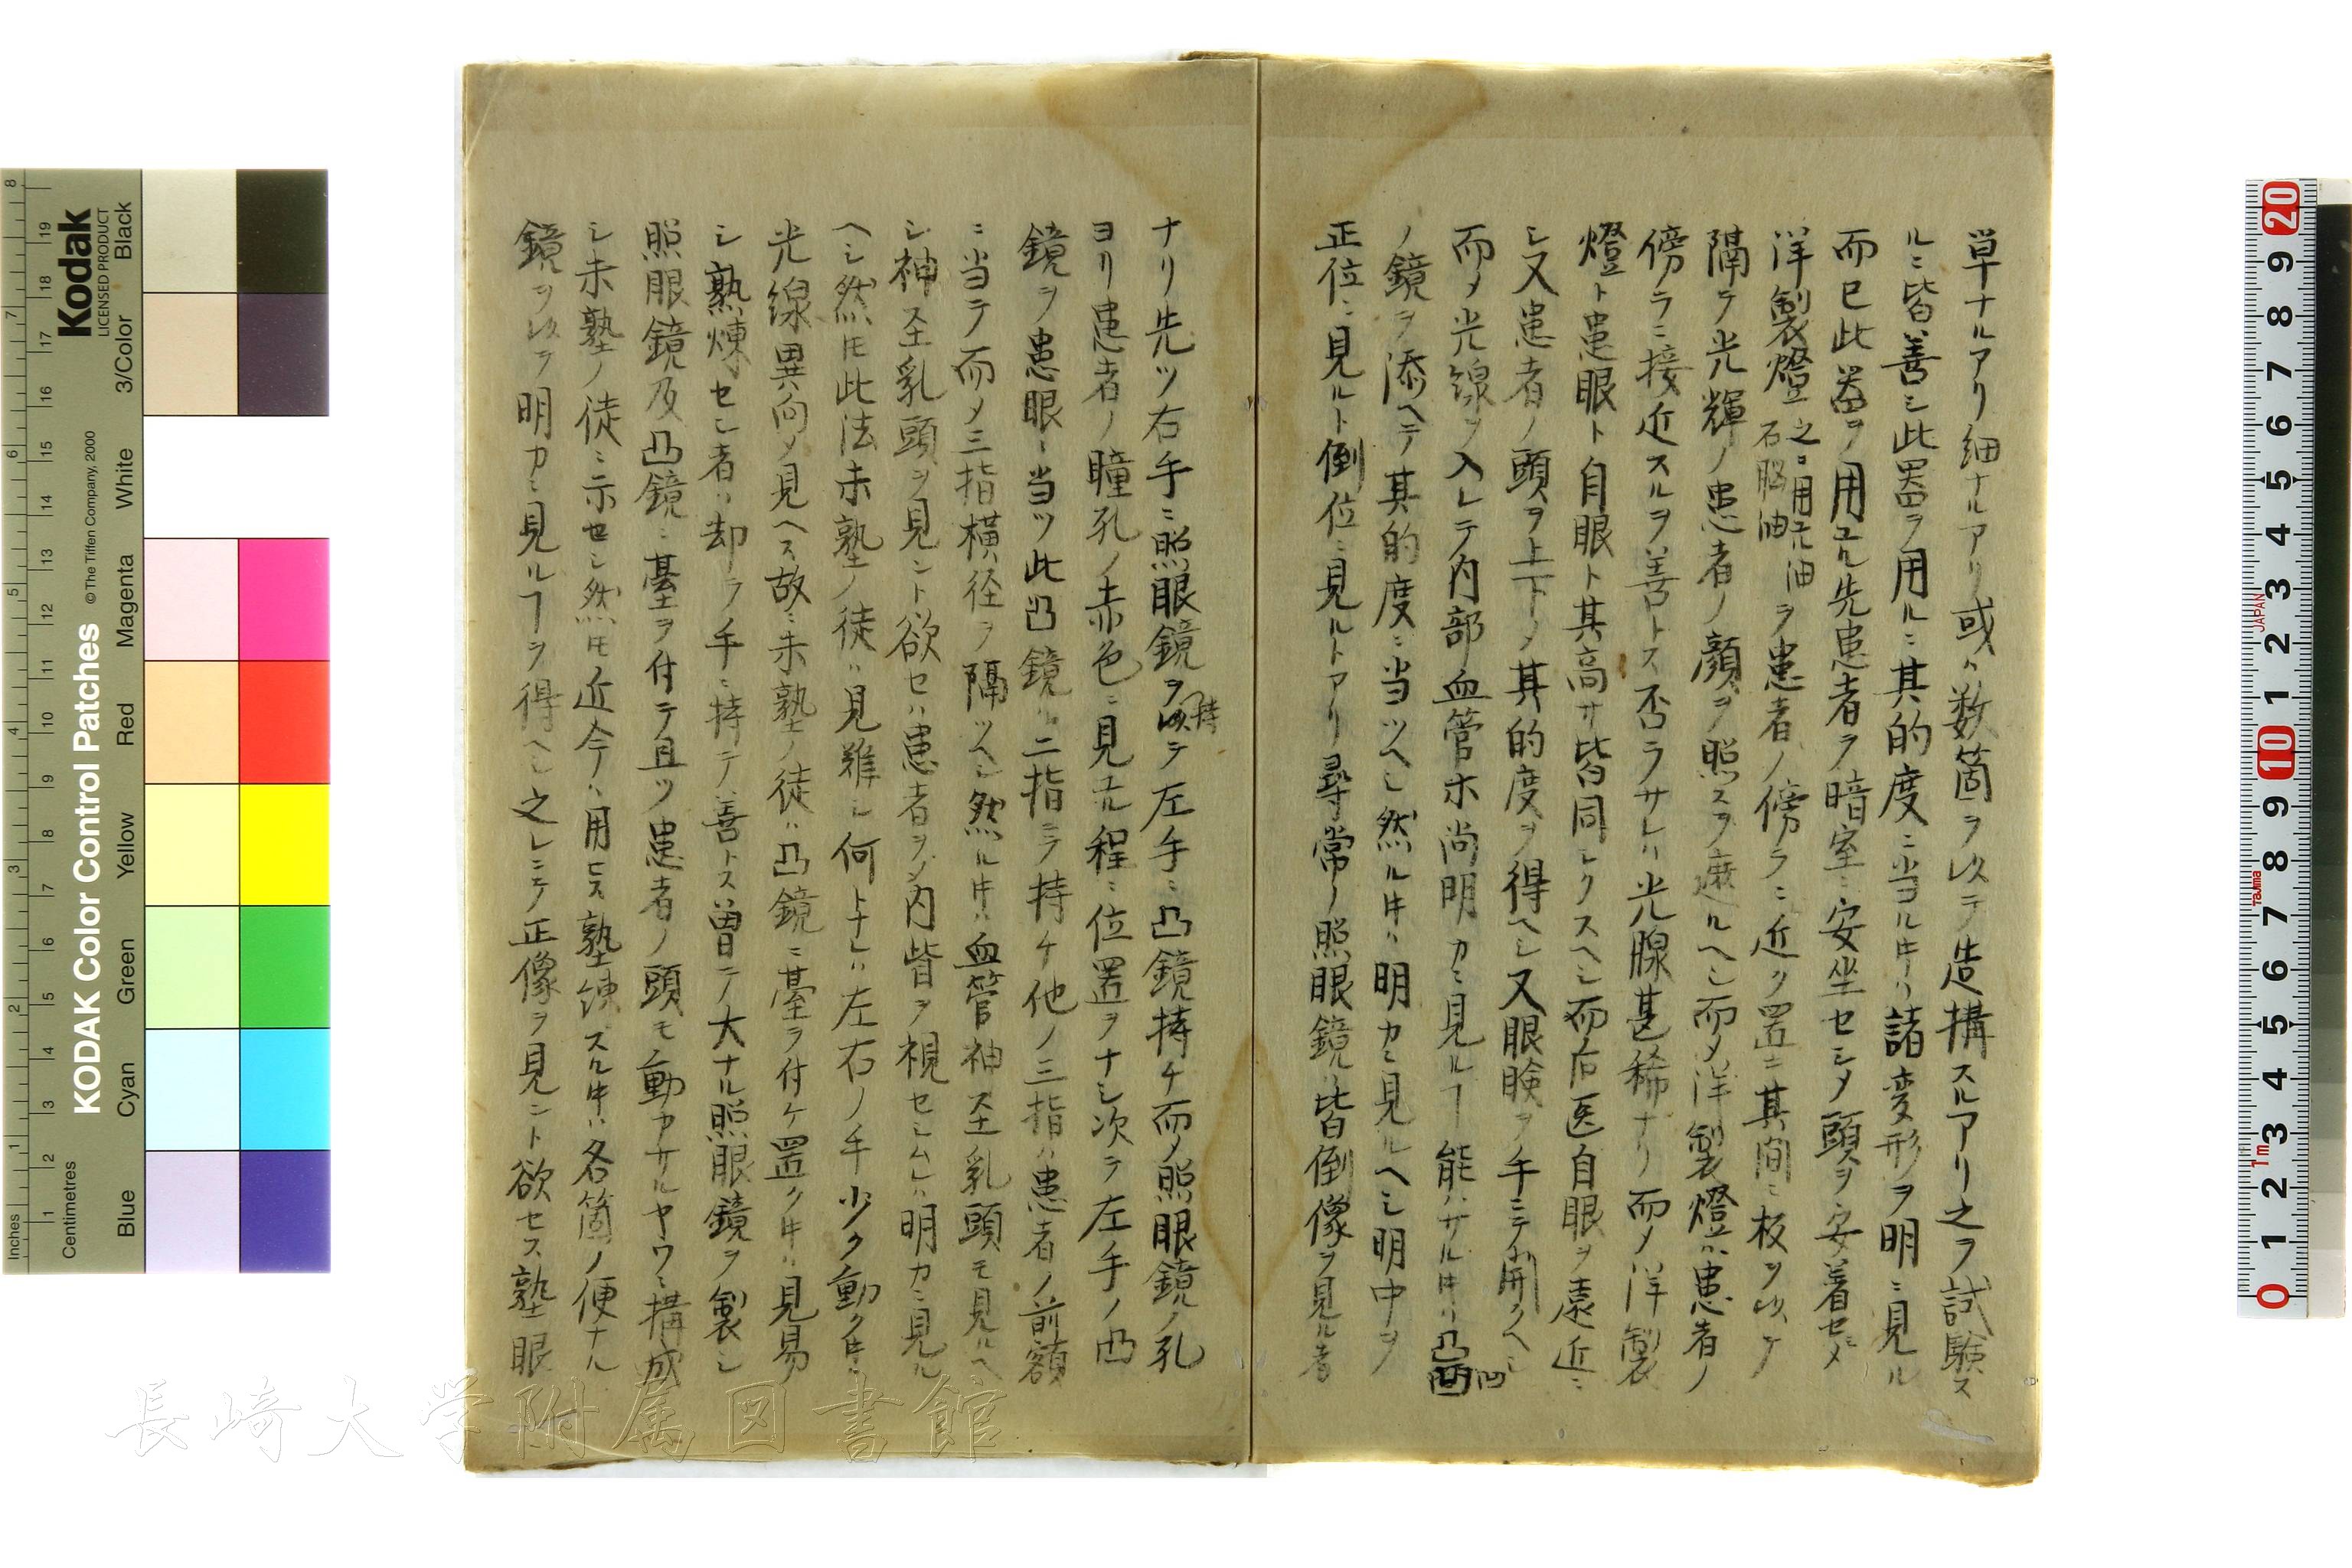 単ナルアリ細ナルアリ或ハ数箇ヲ以テ造搆スルアリ之ヲ試験ス
ルニ皆善シ此器ヲ用ルニ其的度ニ当ル寸ハ諸変形ヲ明ニ見ル
而已此器ヲ用ユル先患者ヲ暗室ニ安坐セシメ頭ヲ安着セシメ
洋製燈
之ニ用ユル油
石脳油
ヲ患者ノ傍ラニ近ク置キ其間ニ板ヲ以テ
隔テ光輝ノ患者ノ顔ヲ照スヲ遮ルヘシ而メ洋製燈ハ患者ノ
傍ラニ接近スルヲ善トス否ラサレハ光腺甚稀ナリ而メ洋製
燈ト患眼ト自眼ト其高サ皆同シクスヘシ而后医自眼ヲ遠近ニ
シ又患者ノ頭ヲ上下メ其的度ヲ得ヘシ又眼瞼ヲ手ニテ開クヘシ
而メ光線ヲ入レテ内部血管ホ尚明カニ見ルヿ能ハサル寸ハ凸凹
ノ鏡ヲ添ヘテ其的度ニ当ツヘシ然ル寸ハ明カニ見ルヘシ明中ヲ
正位ニ見ルト倒位ニ見ルトアリ尋常ノ照眼鏡ハ皆倒像ヲ見ル者
ナリ先ツ右手ニ照眼鏡ヲ持テ左手ニ凸鏡持チ而メ照眼鏡ノ孔
ヨリ患者ノ瞳孔ノ赤色ニ見ユル程ニ位置ヲナシ次テ左手ノ凸
鏡ヲ患眼ニ当ツ此凸鏡ハ二指ニテ持チ他ノ三指ハ患者ノ前額
ニ当テ而メ三指横径ヲ隔ツヘシ然ル寸ハ血管神圣乳頭モ見ルヘ
シ神圣乳頭ヲ見ント欲セハ患者ヲメ内眥ヲ視セシムレハ明カニ見ル
ヘシ然ㇳモ此法未塾ノ徒ハ見難シ何トナレハ左右ノ手少ク動ク寸ハ
光線異向メ見ヘス故ニ未塾ノ徒ハ凸鏡ニ臺ヲ付ケ置ク寸ハ見易
シ熟煉セシ者ハ却テ手ニ持テ善トス曽テ大ナル照眼鏡ヲ製シ
照眼鏡及凸鏡ニ臺ヲ付テ且ツ患者ノ頭モ動カサルヤウニ搆成
シ未塾ノ徒ニ示セシ然ㇳモ近今ハ用ヒス塾練スル寸ハ各箇ノ便ナル
鏡ヲ以テ明カニ見ルヿヲ得ヘシ之レニテ正像ヲ見ント欲セス塾眼
Kodak
LICENSED PRODUCT
KODAK Color Control Patches
© The Tiffen Company, 2000
Inches
Centimetres
Blue
Cyan
Green
Yellow
Red
Magenta
White
3/Color
Black
JAPAN
Tajima
1m
長崎大学附属図書館